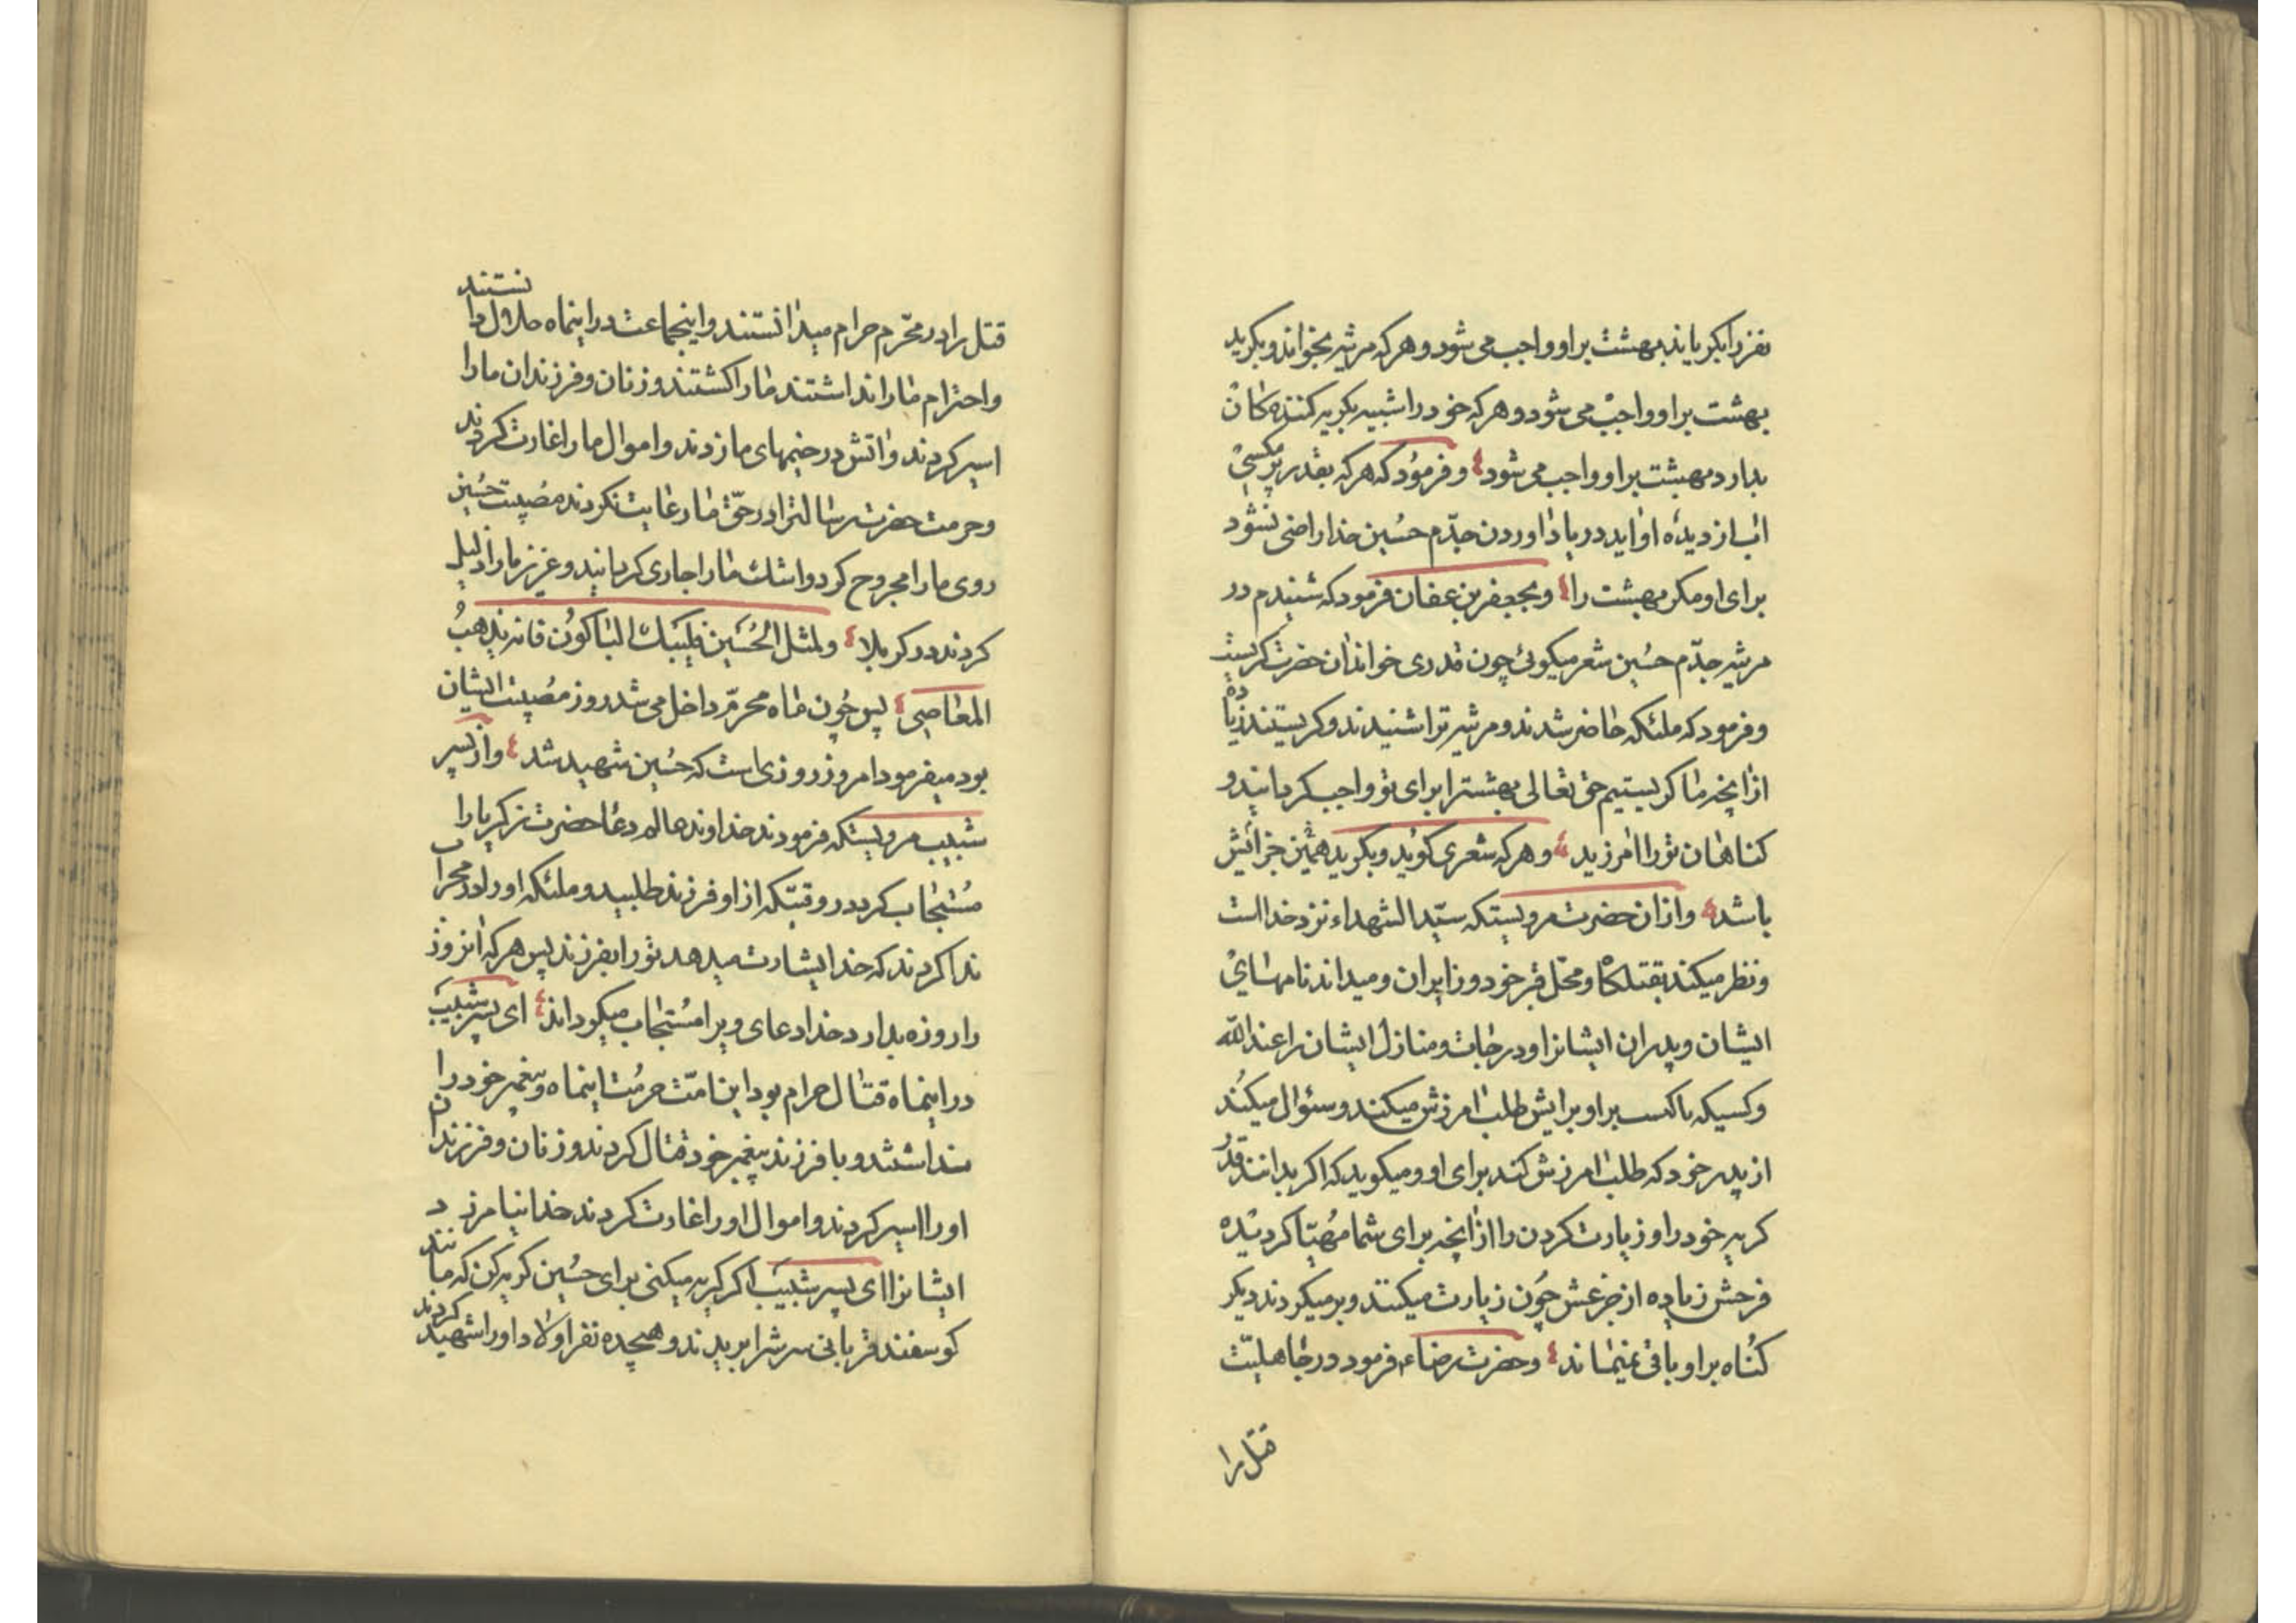 نفر را بکریاند بهشت بر او واجب می شود و هر که مرثیه بخواند و بکرید
بهشت بر او واجب می شود و هر که خود را شبیه بکریه کننده کان
بدارد بهشت بر او واجب می شود و فرمود که هر که بقدر پر مکسی
اب از دیده او اید در یاد اوردن جدّم حسین خدا راضی نشود
برای او مکر بهشت را و بجعفر بن عفان فرمود که شنیدم در
مرثیه جدّم حسین شعر میکوئی چون قدری خواند ان حضرت کریست
و فرمود که ملئکه حاضر شدند و مرثیه ترا شنیدند و کریستند زیاده
از انچه ما کریستیم حق تعالی بهشترا برای تو واجب کردانید و
کناهان تو را امرزید و هر که شعری کوید و بکرید همین جزائش
باشد و از ان حضرت مرویستکه سیّد الشهداء نزد خدا است
و نظر میکند بقتلکاه و محّل قبر خود و زایران و میداند نامهای
ایشان و پدران ایشانرا و درجات و منازل ایشان را عند اللّه
و کسیکه باکست بر او برایش طلب امرزش میکند و سئوال میکند
از پدر خود که طلب امرزش کند برای او و میکوید که اکر بدانند قدر
کریه خود را و زیارت کردن را از انچه برای شما مهیّا کردیده
فرحش زیاده از جزعش چون زیارت میکنند و برمیکردند دیکر
کناه بر او باقی نمیماند و حضرت رضاء فرمود در جاهلیّت
قتل را
قتل را در محّرم حرام میدانستند و اینجماعت در اینماه حلال دانستند
و احترام ما را نداشتند ما را کشتند و زنان و فرزندان ما را
اسیر کردند و اتش در خیمهای ما زدند و اموال ما را غارت کردند
و حرمت حضرت رسالترا در حّق ما رعایت نکردند مصیبت حسین
روی ما را مجروح کرد و اشک ما را جاری کردانید و عزیز ما را ذلیل
کردند در کربلا و لمثل الحُسَین فلیبک الباکوُن فانه یذهبُ
المعاصی پس چون ماه محرّم داخل می شد روز مصیبت ایشان
بود میفرمود امروز روزی است که حسین شهید شد و از پسر
شبیب مرویستکه فرمودند خداوند عالم دعا حضرت زکریا را
مُستجاب کرد در وقتیّکه از او فرزند طلبید و ملئکه او را در محراب
ندا کردند که خدا بشارت میدهد تو را بفرزند پس هر که انروز
را روزه بدارد خدا دعای ویرا مُستجاب میکرداند ای پسر شبیب
در اینماه قتال حرام بود این امّت حرمت اینماه و پیغمبر خود را
نداشتند و با فرزند پیغمبر خود قتال کردند و زنان و فرزندان
او را اسیر کردند و اموال او را غارت کردند خدا نیامرزد
ایشانرا ای پسر شبیب اکر کریه میکنی برای حسین کریه کن که مانند
کوسفند قربانی سرشرا بریدند و هیجده نفر اولاد او را شهید کردند